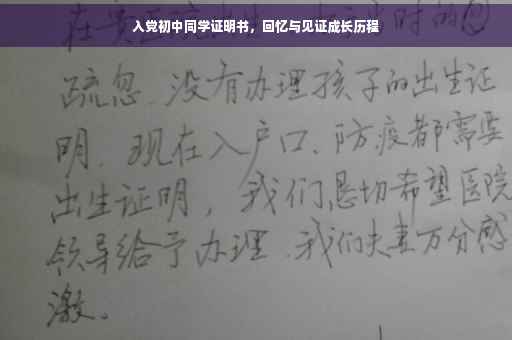 入党初中同学证明书，回忆与见证成长历程
疏忽、没有办理孩子的出生证
明、现在入户口、防疫都需要
出生证明，我们恳切希望医院
领导给予办理、我们夫妻万分感
激。